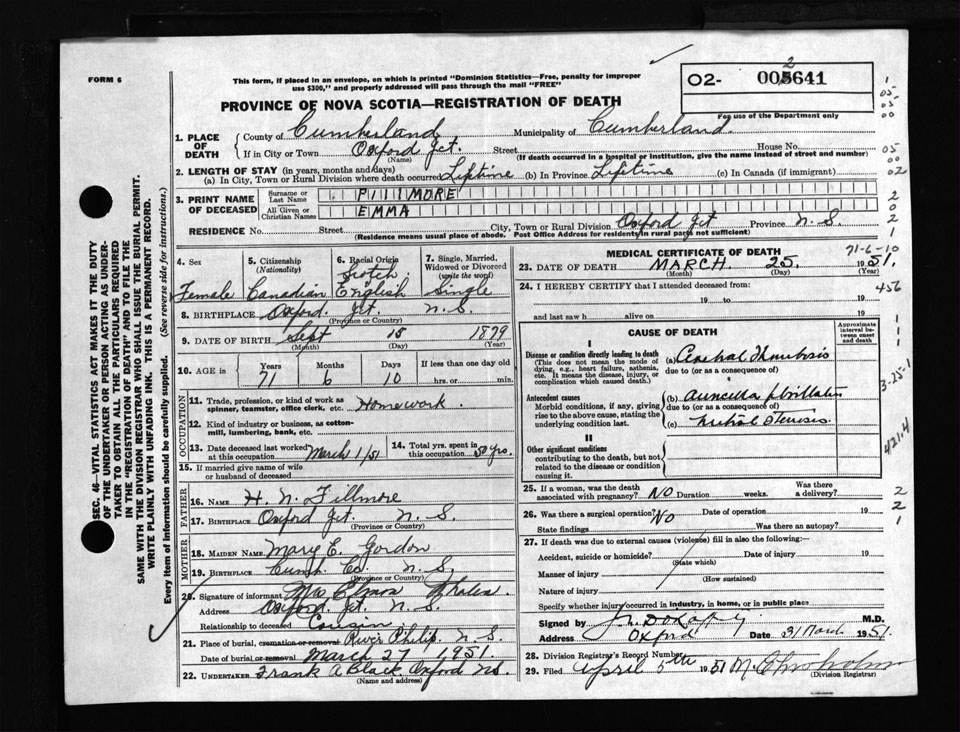 FORM 6
This form, if placed in an envelope, on which is printed "Dominion Statistics—Free, penalty for improper
use $300," and properly addressed will pass through the mail "FREE"
PROVINCE OF NOVA SCOTIA—REGISTRATION OF DEATH
O2- 005641
2
For use of the Department only
SEC. 46—VITAL STATISTICS ACT MAKES IT THE DUTY
OF THE UNDERTAKER OR PERSON ACTING AS UNDER-
TAKER TO OBTAIN ALL THE PARTICULARS REQUIRED
IN THE "REGISTRATION OF DEATH" AND TO FILE THE
SAME WITH THE DIVISION REGISTRAR WHO SHALL ISSUE THE BURIAL PERMIT.
WRITE PLAINLY WITH UNFADING INK. THIS IS A PERMANENT RECORD.
Every item of information should be carefully supplied. (See reverse side for instructions.)
1. PLACE OF DEATH County of Cumberland Municipality of Cumberland
If in City or Town Oxford Jct. Street House No.
(Name) (If death occurred in a hospital or institution, give the name instead of street and number)
2. LENGTH OF STAY (in years, months and days)
(a) In City, Town or Rural Division where death occurred Lifetime (b) In Province Lifetime (c) In Canada (if immigrant)
3. PRINT NAME OF DECEASED Surname or Last Name FILLMORE
All Given or Christian Names EMMA
RESIDENCE No. Street City, Town or Rural Division Oxford Jct Province N.S.
(Residence means usual place of abode. Post Office Address for residents in rural parts not sufficient)
4. Sex Female
5. Citizenship (Nationality) Canadian
6. Racial Origin Scotch English
7. Single, Married, Widowed or Divorced (write the word) Single
8. BIRTHPLACE Oxford Jct. N.S.
(Province or Country)
9. DATE OF BIRTH Sept 15 1879
(Month) (Day) (Year)
10. AGE in Years 71 Months 6 Days 10 If less than one day old hrs. or min.
OCCUPATION
11. Trade, profession, or kind of work as spinner, teamster, office clerk, etc. Homework
12. Kind of industry or business, as cotton-mill, lumbering, bank, etc.
13. Date deceased last worked at this occupation March 1/51
14. Total yrs. spent in this occupation 50 yrs.
15. If married give name of wife or husband of deceased
FATHER
16. NAME H. N. Fillmore
17. BIRTHPLACE Oxford Jct. N.S.
(Province or Country)
MOTHER
18. MAIDEN NAME Mary E. Gordon
19. BIRTHPLACE Cumb. Co. N.S.
(Province or Country)
20. Signature of informant Mrs Elmon
Address Oxford Jct. N.S.
Relationship to deceased Cousin
21. Place of burial, cremation or removal River Philip N.S.
Date of burial or removal March 27 1951
22. UNDERTAKER Frank A Black Oxford NS.
(Name and address)
MEDICAL CERTIFICATE OF DEATH 71-6-10
23. DATE OF DEATH MARCH 25 1951
(Month) (Day) (Year)
24. I HEREBY CERTIFY that I attended deceased from:
19 to 19
and last saw h alive on 19
CAUSE OF DEATH
Approximate interval between onset and death
I
Disease or condition directly leading to death
(This does not mean the mode of dying, e.g., heart failure, asthenia, etc. It means the disease, injury, or complication which caused death.)
(a) Cerebral Thrombosis
due to (or as a consequence of)
Antecedent causes
Morbid conditions, if any, giving rise to the above cause, stating the underlying condition last.
(b) Auricular fibrillation
due to (or as a consequence of)
(c) Mitral Stenosis
II
Other significant conditions
contributing to the death, but not related to the disease or condition causing it.
25. If a woman, was the death associated with pregnancy? NO Duration weeks. Was there a delivery?
26. Was there a surgical operation? NO Date of operation 19
State findings Was there an autopsy?
27. If death was due to external causes (violence) fill in also the following:
Accident, suicide or homicide? Date of injury 19
Manner of injury
(How sustained)
Nature of injury
Specify whether injury occurred in industry, in home, or in public place
Signed by M.D.
Address Oxford Date 31 March 1951
28. Division Registrar's Record Number
29. Filed April 5th 1951
(Division Registrar)
1
05-
05-
00
05
00
02
2
0
2
1
456
3-25-1
421.4
2
2
1